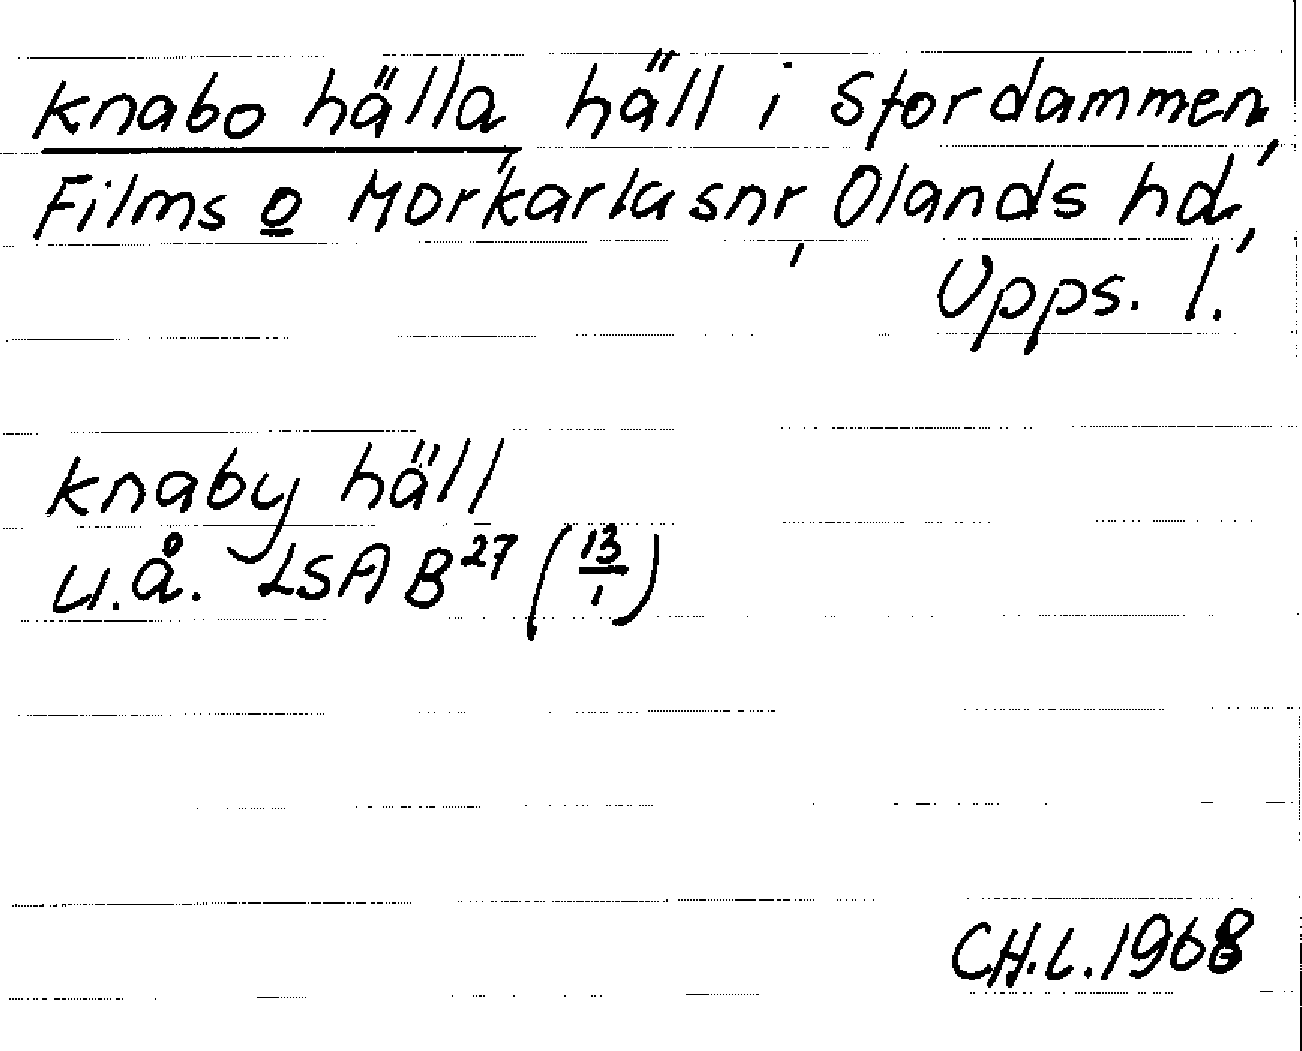 Knabo hälla häll i Stordammen,
Films o Morkarla snr, Olands hd,
Upps. l.
Knaby häll
u.å. LSA B27 (13/1)
C.H.L. 1968